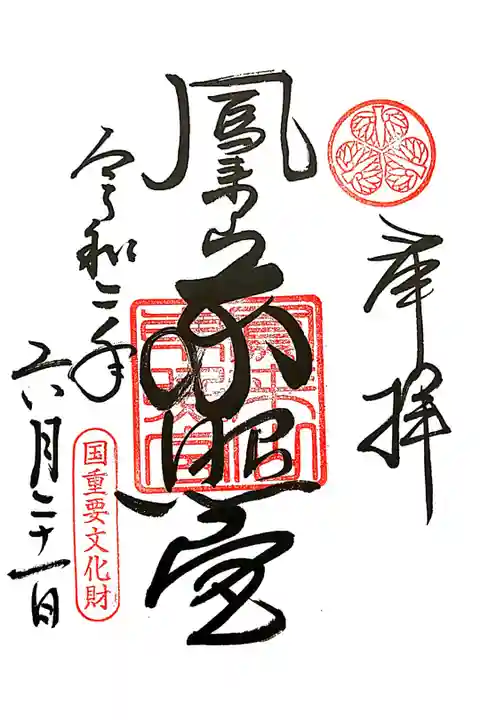 奉拝
鳳来山東照宮
令和二年
六月二十一日
国重要文化財